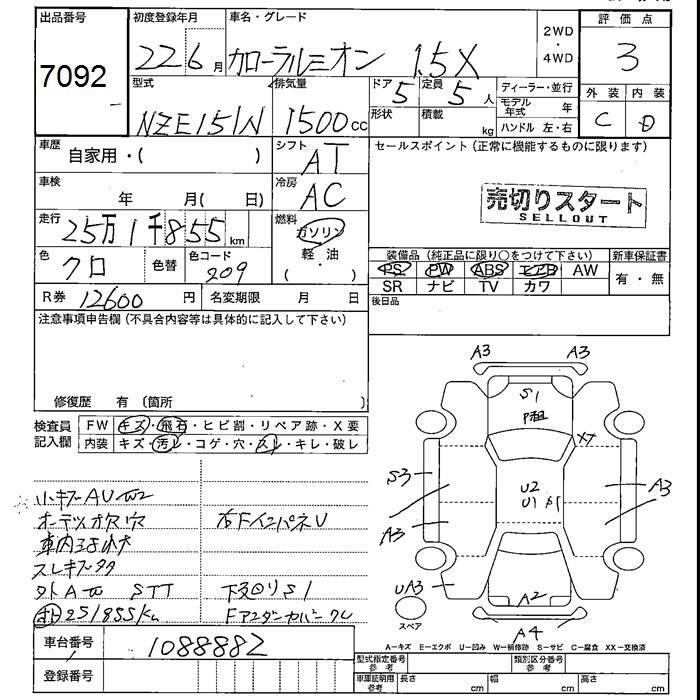 出品番号 初度登録年月 車名・グレード 2WD・4WD 評価点
7092 22 6月 カローラルミオン 1.5X 3
型式 排気量 ドア 定員 ディーラー・並行 外装 内装
NZE151N 1500cc 5 5人 モデル年式 年 C D
形状 積載 kg ハンドル 左・右
車歴 自家用・( ) シフト AT セールスポイント(正常に機能するものに限ります)
車検 年 月( 日) 冷房 AC 売切りスタート
SELLOUT
走行 25万1千855km 燃料 ガソリン
軽・油
( ・ )
色 クロ 色替 色コード 209 装備品(純正品に限り○をつけて下さい) 新車保証書
PS PW ABS エアB AW 有・無
SR ナビ TV カワ
R券 12600円 名変期限 月 日 後日品
注意事項申告欄(不具合内容等は具体的に記入して下さい)
修復歴 有(箇所
検査員記入欄 FW キズ・飛石・ヒビ割・リペア跡・X要
内装 キズ・汚レ・コゲ・穴・スレ・キレ・破レ
小キズAU
オーディオ欠穴 右FインパネU
車内
スレキズ
外A STT 下廻りS1
251855km Fアンダーカバー
車台番号 1088882
登録番号
A3 A3
S1
P
XX
S3
U2
U1 S1
A3
A3
UA3
A2
A4
スペア
A=キズ E=エクボ U=凹み W=補修跡 S=サビ C=腐食 XX=交換済
型式指定番号 参考 類別区分番号 参考
車庫証明用 参考 長さ cm 幅 cm 高さ cm